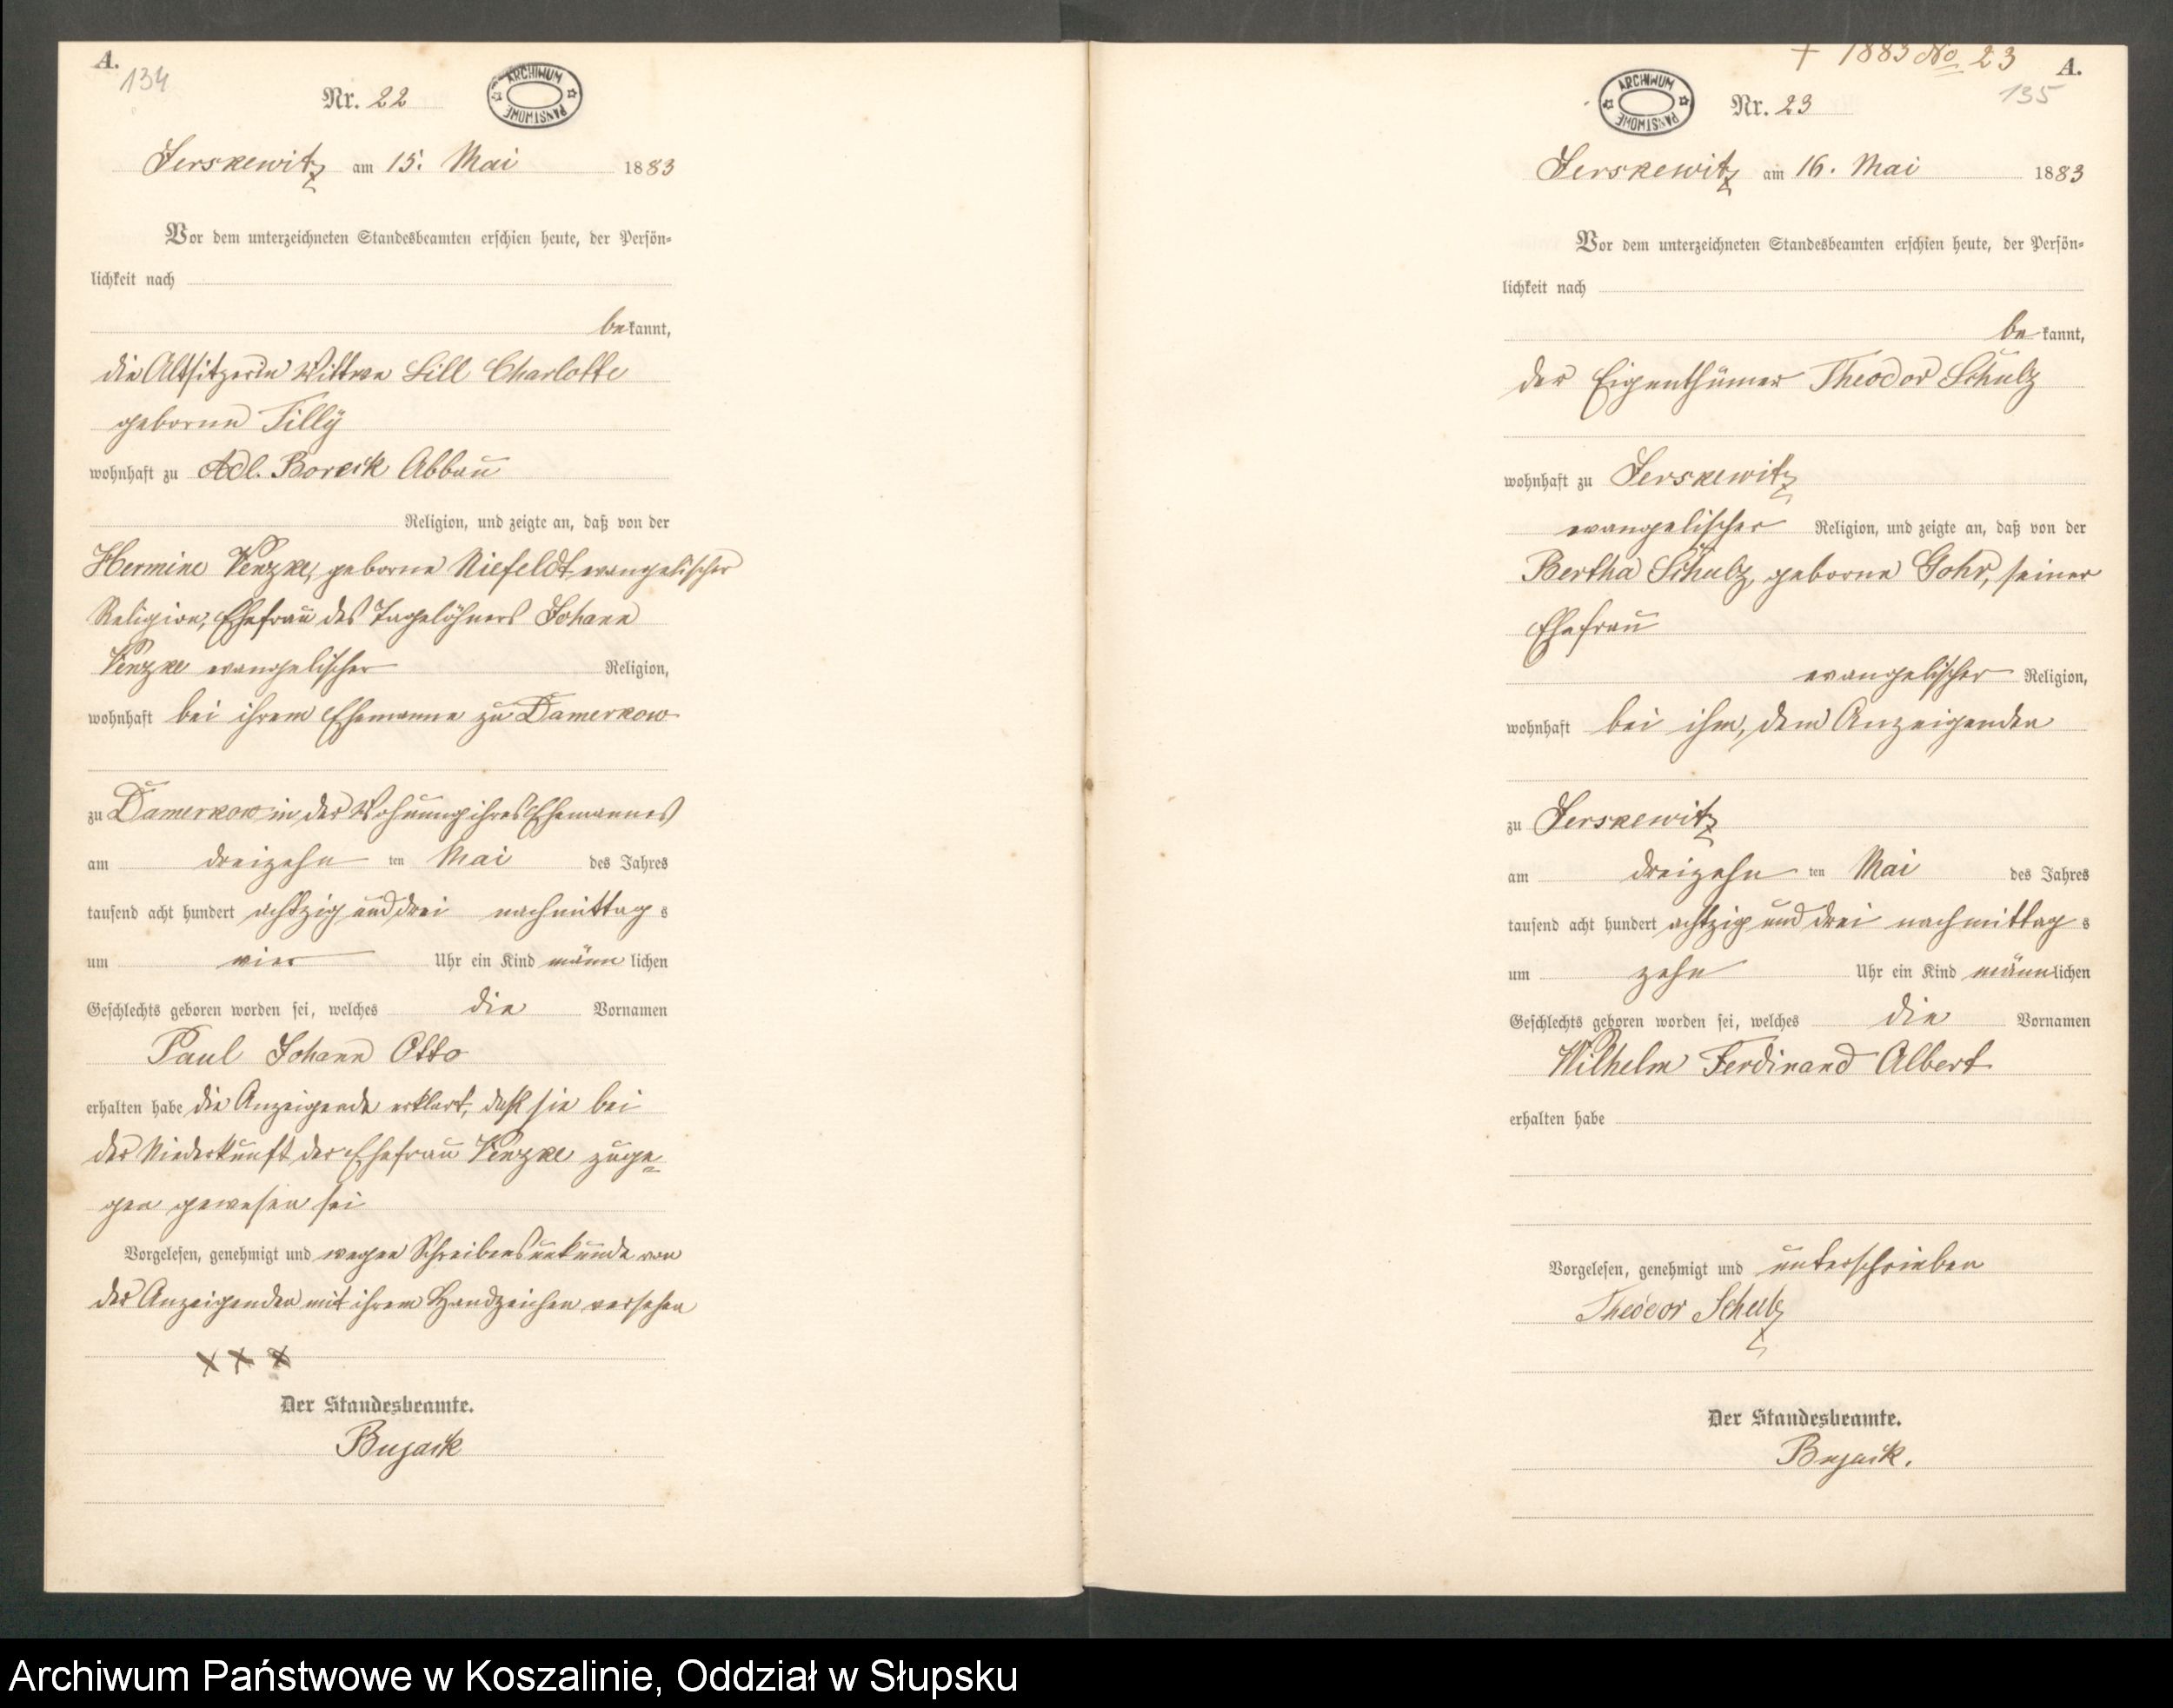 A.
134
Nr. 22
ARCHIWUM PAŃSTWOWE
Jerskewitz am 15. Mai 1883
Vor dem unterzeichneten Standesbeamten erschien heute, der Persön-
lichkeit nach
bekannt,
die Altsitzerin Wittwe Lill Charlotte
geborne Tilly
wohnhaft zu Adl. Borcik Abbau
Religion, und zeigte an, daß von der
Hermine Venzke, geborne Niefeldt evangelischer
Religion, Ehefrau des Tagelöhners Johann
Venzke evangelischer Religion,
wohnhaft bei ihrem Ehemanne zu Damerkow
zu Damerkow in der Wohnung ihres Ehemannes
am dreizehn ten Mai des Jahres
tausend acht hundert achtzig und drei nachmittag s
um vier Uhr ein Kind männ lichen
Geschlechts geboren worden sei, welches die Vornamen
Paul Johann Otto
erhalten habe die Anzeigende erklärt, daß sie bei
der Niederkunft der Ehefrau Venzke zuge-
gen gewesen sei
Vorgelesen, genehmigt und wegen Schreibensunkunde von
der Anzeigenden mit ihrem Handzeichen versehen
x x x
Der Standesbeamte.
Bujack
+ 1883 No 23
A.
135
ARCHIWUM PAŃSTWOWE
Nr. 23
Jerskewitz am 16. Mai 1883
Vor dem unterzeichneten Standesbeamten erschien heute, der Persön-
lichkeit nach
be kannt,
der Eigenthümer Theodor Schulz
wohnhaft zu Jerskewitz
evangelischer Religion, und zeigte an, daß von der
Bertha Schulz, geborne Gohr, seiner
Ehefrau
evangelischer Religion,
wohnhaft bei ihm, dem Anzeigenden
zu Jerskewitz
am dreizehn ten Mai des Jahres
tausend acht hundert achtzig und drei nachmittag s
um zehn Uhr ein Kind männlichen
Geschlechts geboren worden sei, welches die Vornamen
Wilhelm Ferdinand Albert
erhalten habe
Vorgelesen, genehmigt und unterschrieben
Theodor Schulz
Der Standesbeamte.
Bujack.
Archiwum Państwowe w Koszalinie, Oddział w Słupsku